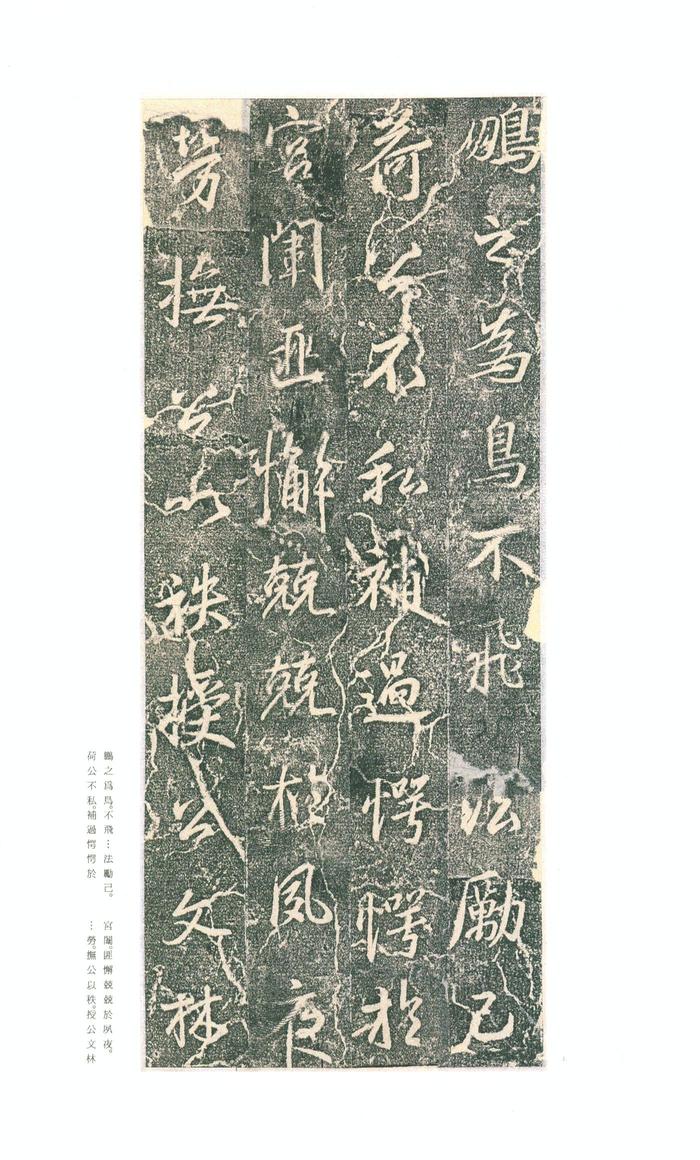 鵬之為鳥不飛法勵己
荷公不私補過愕愕於
宮闈匪懈兢兢於夙夜
勞撫公以秩授公文林
鵬之爲鳥。不飛…法勵己。
荷公不私。補過愕愕於
宮闈。匪懈兢兢於夙夜。
…勞。撫公以秩。授公文林